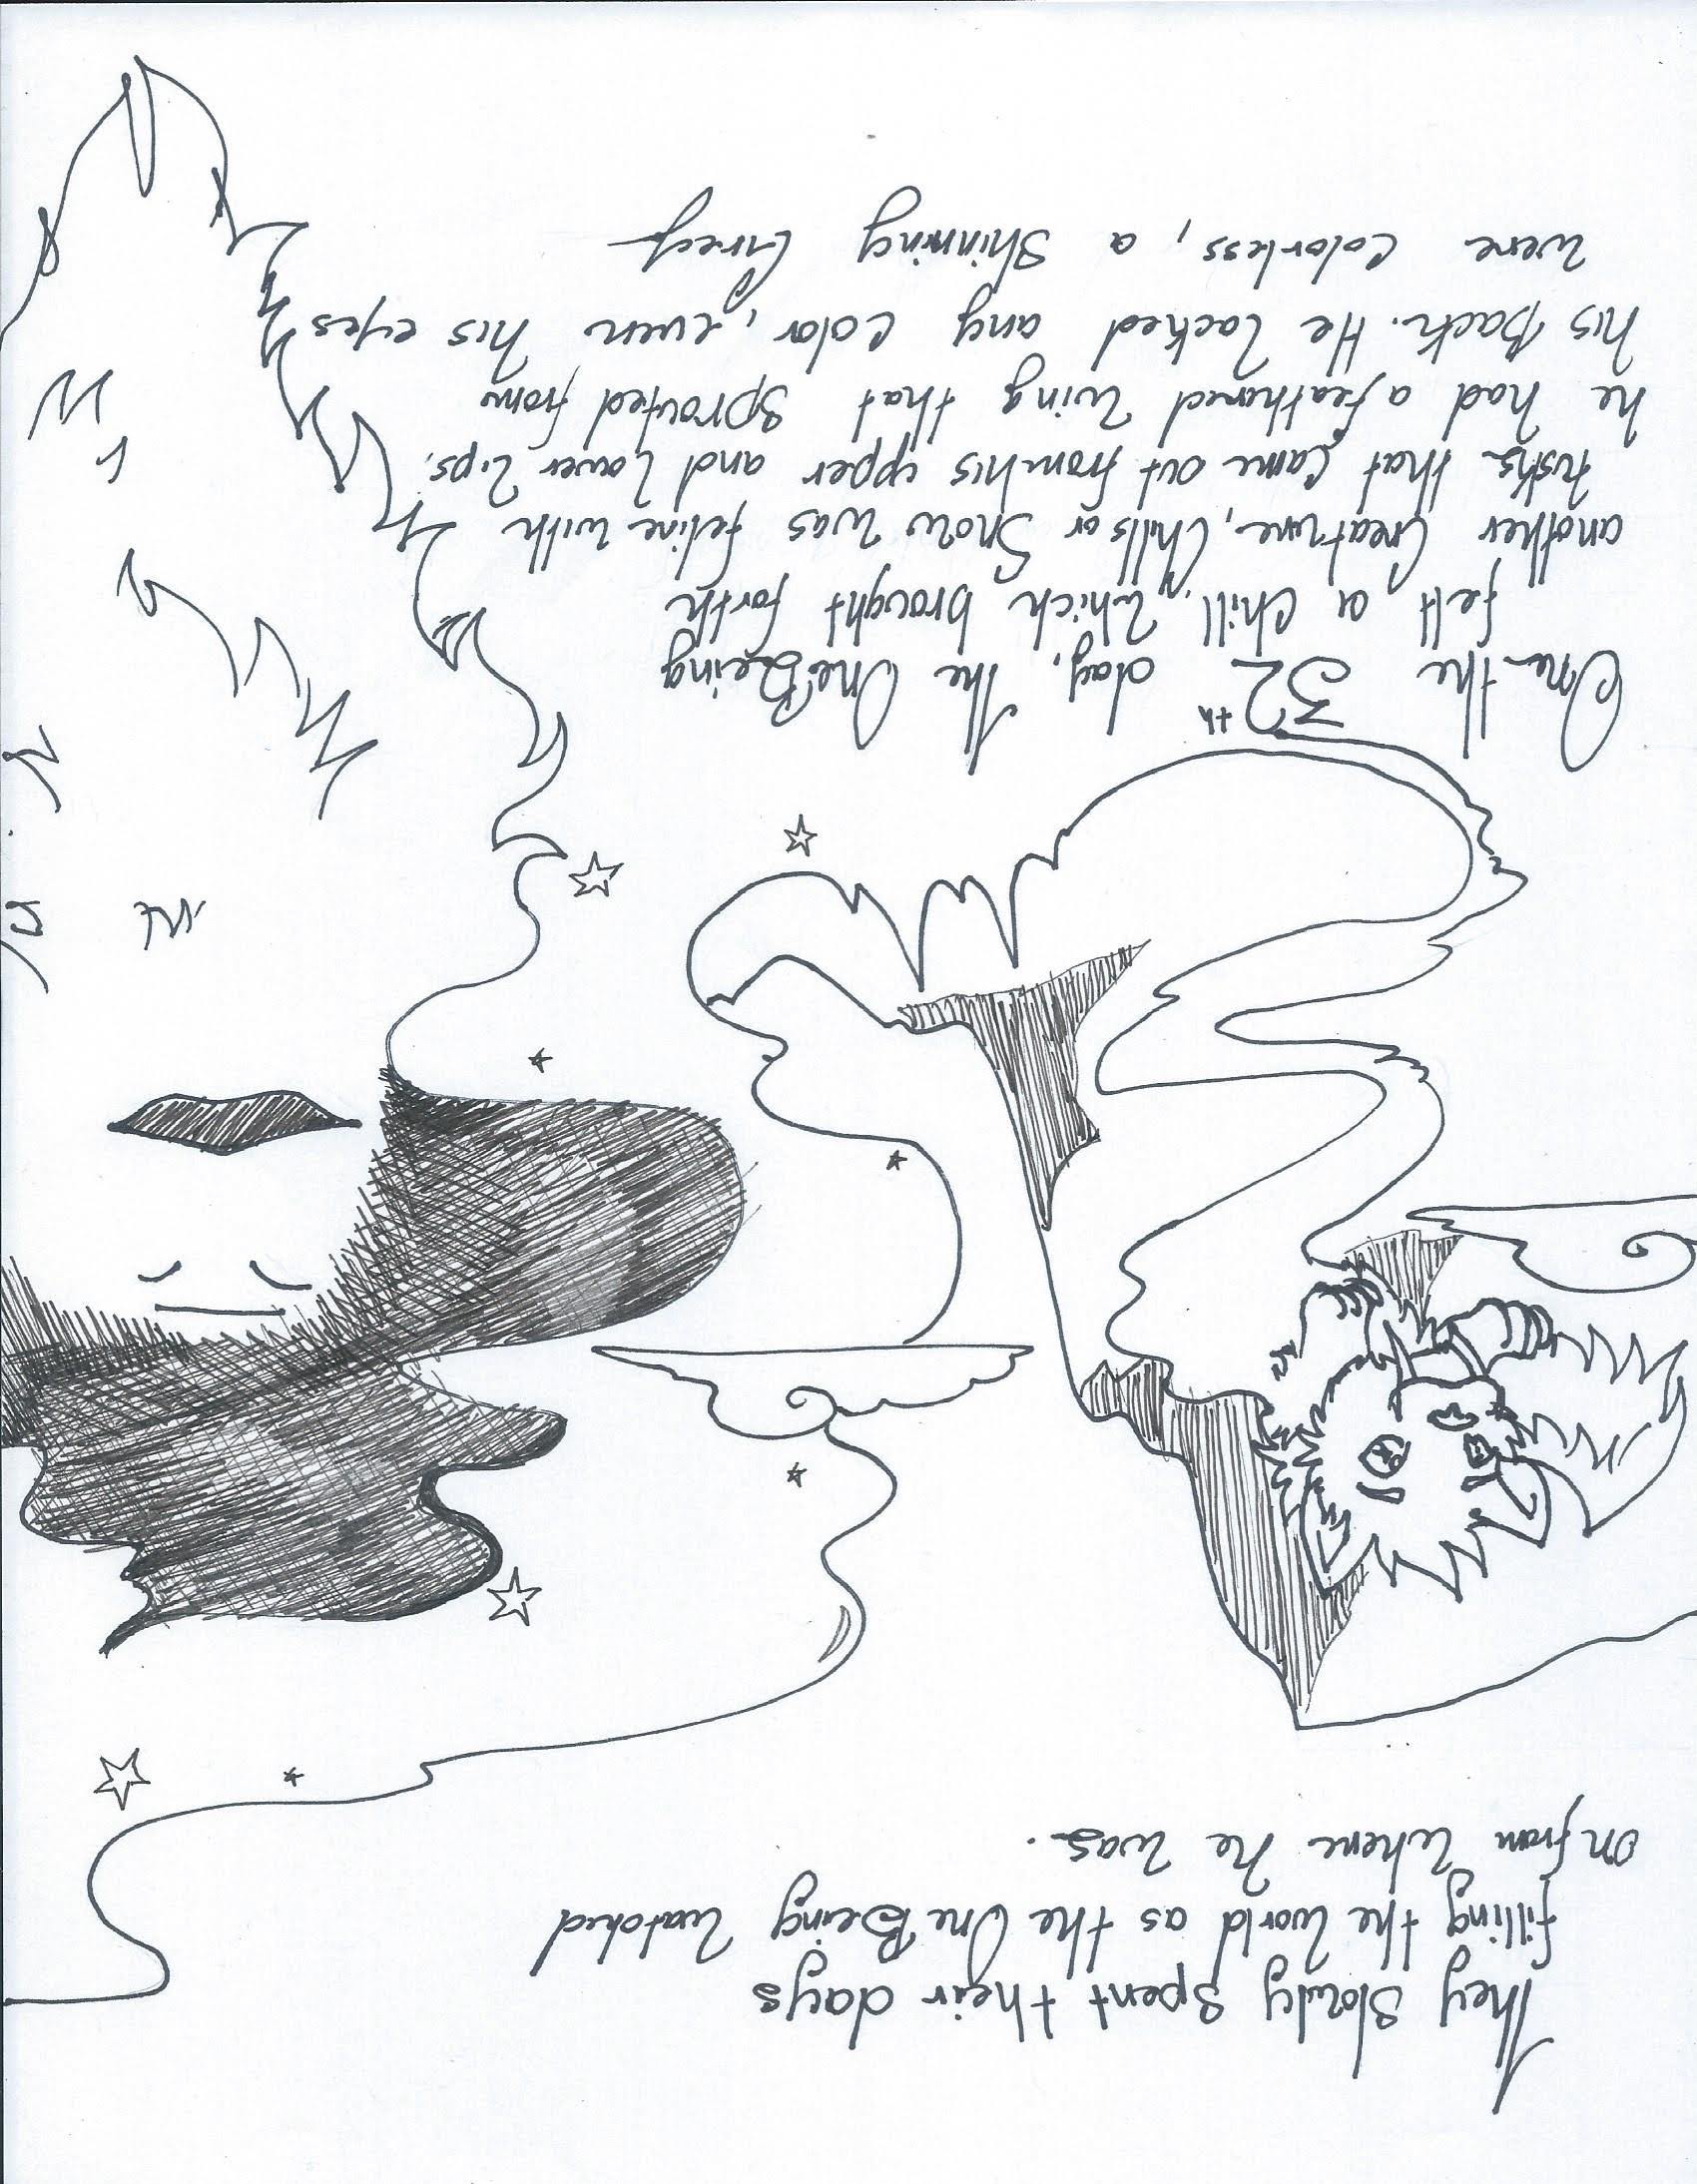 They slowly spent their days
filling the world as the One Being watched
on from where he was.
One the 32th day, the One Being
felt a chill, which brought forth
another creature, Chills or Snow was feline with
tusks that came out from his upper and lower lips.
he had a feathered wing that sprouted from
his back. He lacked any color, even his eyes
were colorless, a shinning Grey